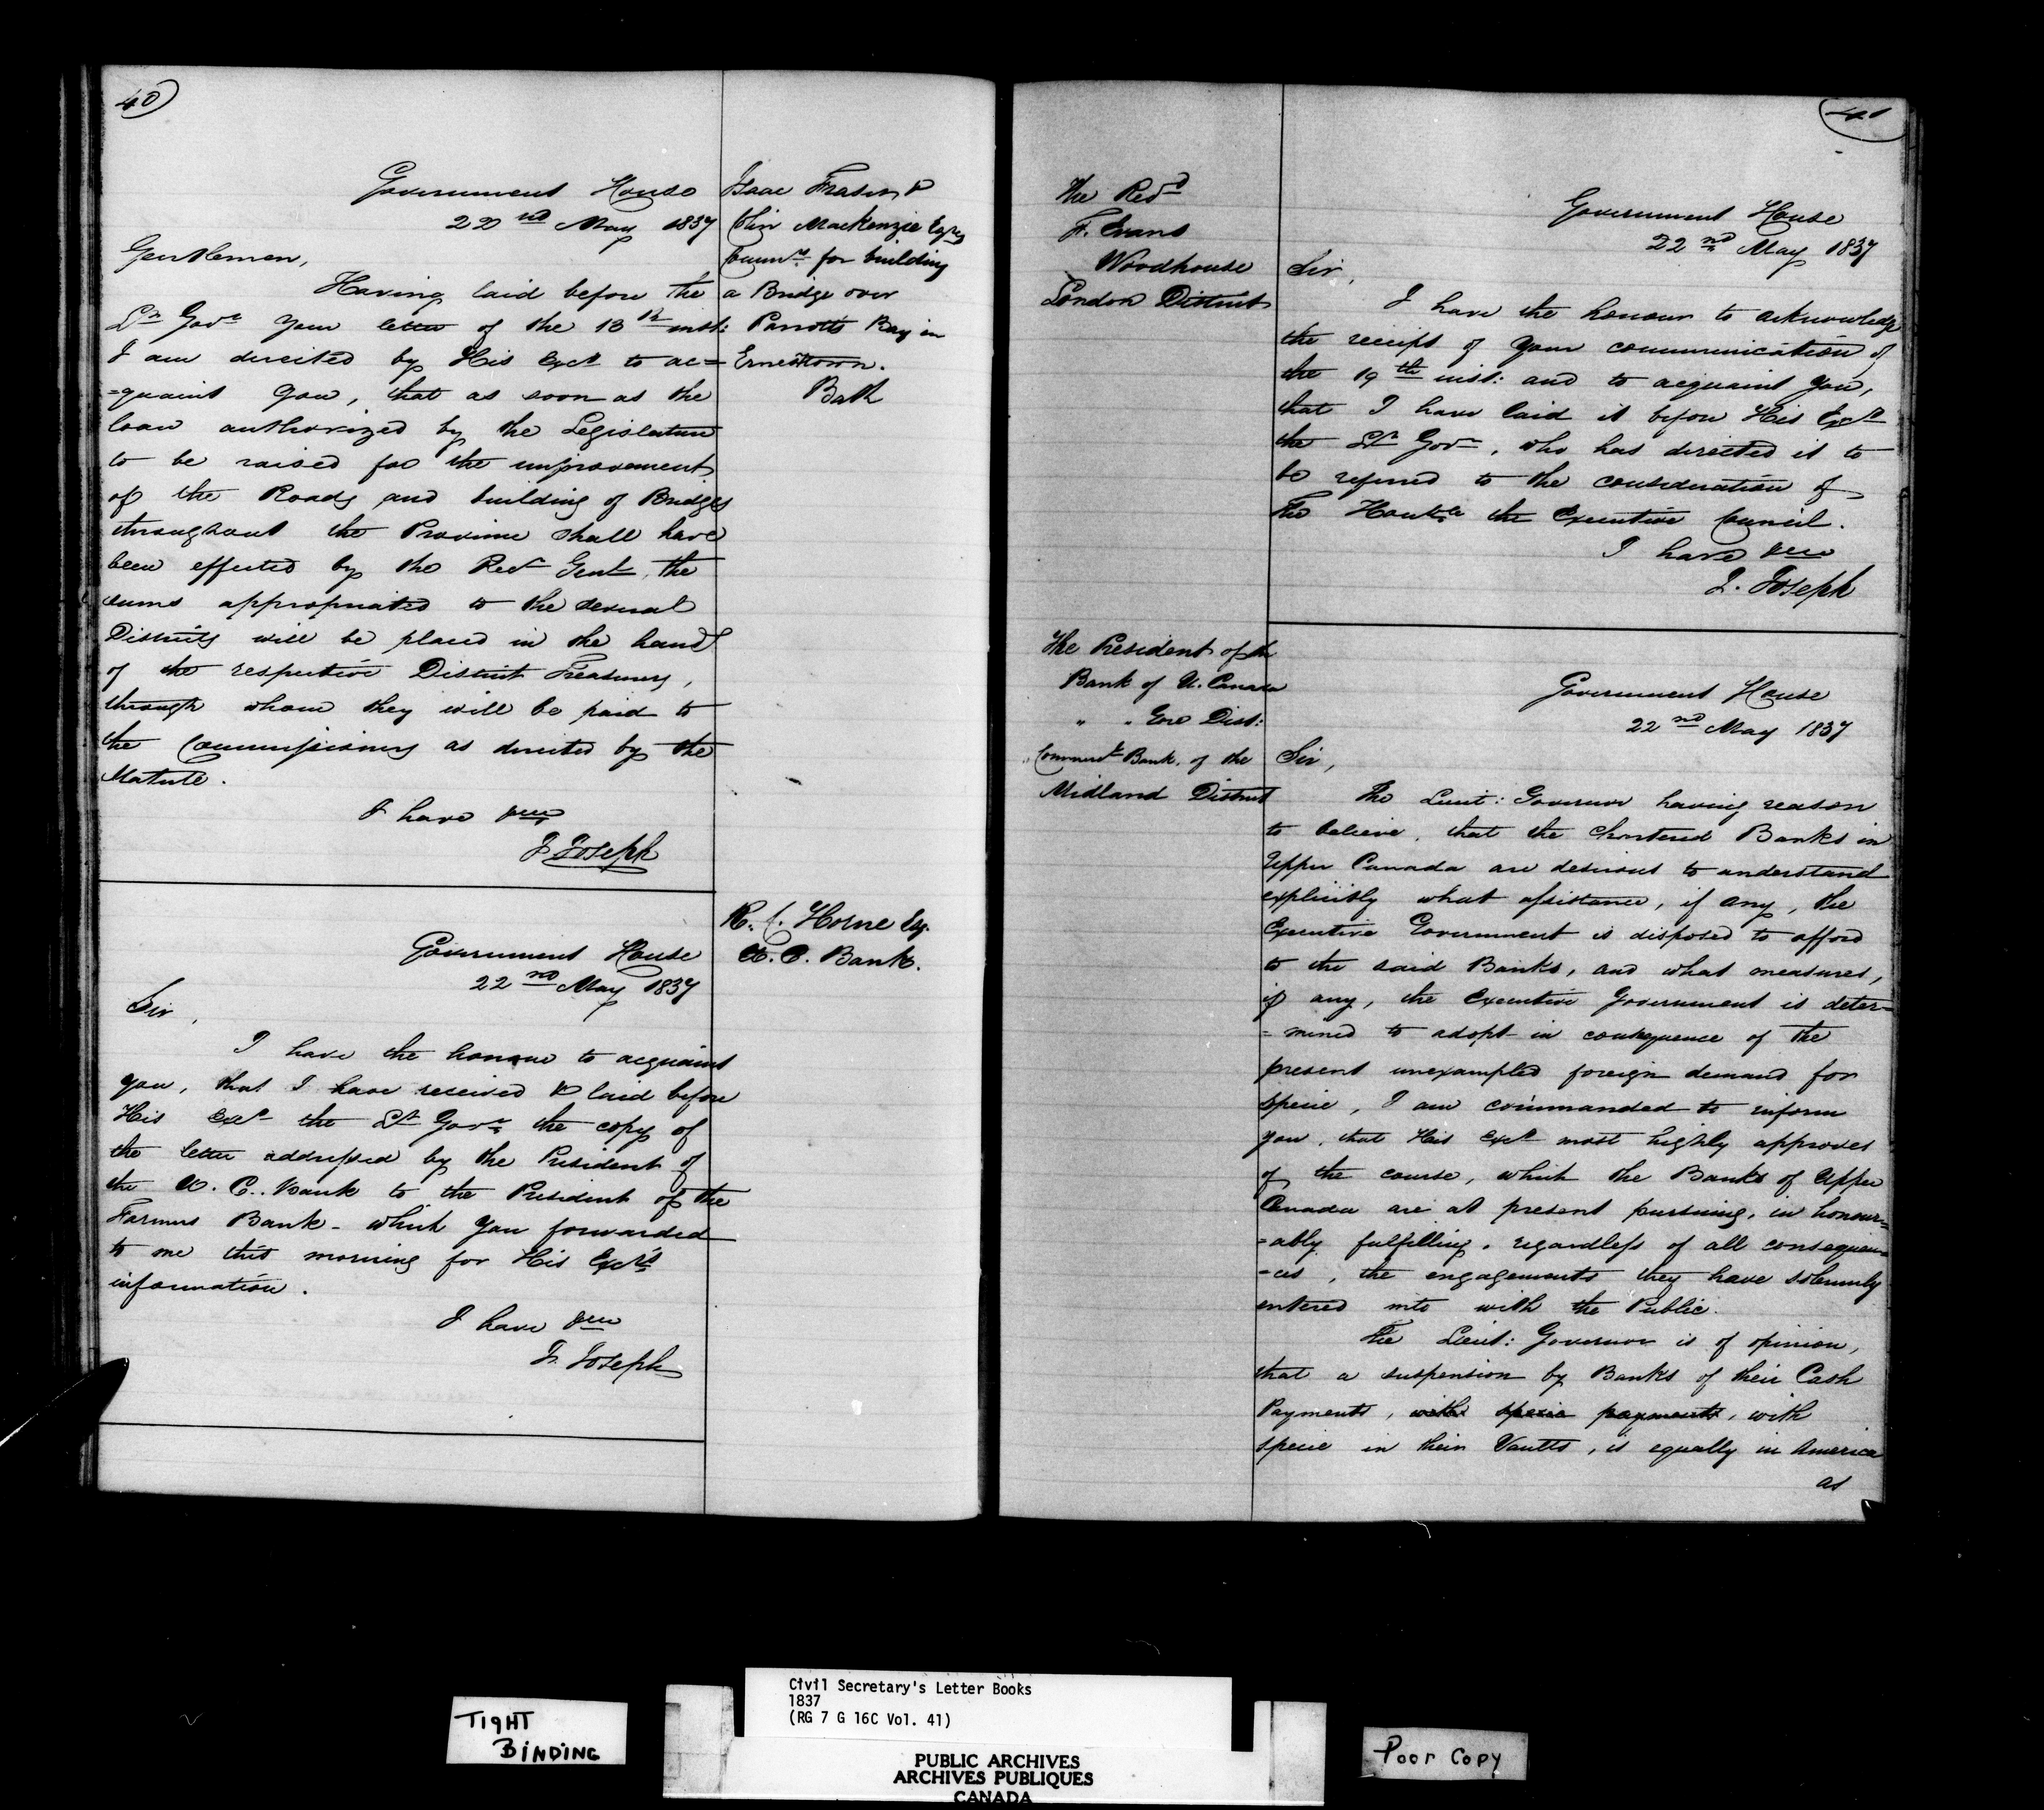 40
Government House
22nd May 1837
Gentlemen,
Having laid before the
Lt Govr your letter of the 13th inst:
I am directed by His Excy to ac=
=quaint you, that as soon as the
loan authorized by the Legislature
to be raised for the improvement
of the Roads and building of Bridges
throughout the Province shall have
been effected by the Recr Genl, the
sums appropriated to the several
Districts will be placed in the hands
of the respective District Treasurers,
through whom they will be paid to
the Commissioners as directed by the
Statute.
I have &c
J Joseph
Isaac Fraser &
Colin Mackenzie Esqres
Commrs for building
a Bridge over
Parrotts Bay in
Ernesttown.
Bath
Government House
22nd May 1837
Sir,
I have the honour to acquaint
you, that I have received & laid before
His Excy the Lt Govr the copy of
the letter addressed by the President of
the U. C. Bank to the President of the
Farmers Bank - which you forwarded
to me this morning for His Excy's
information.
I have &c
J. Joseph
R. C. Horne Esq.
U. C. Bank.
41
The Revd
F. Evans
Woodhouse
London District
Government House
22nd May 1837
Sir,
I have the honour to acknowledge
the receipt of your communication of
the 19th inst: and to acquaint you,
that I have laid it before His Excy
the Lt Govr, who has directed it to
be referred to the consideration of
The Honble the Executive Council.
I have &c
J. Joseph
The President of the
Bank of U. Canada
" " Gore Dist:
" Commercl Bank of the
Midland District
Government House
22nd May 1837
Sir,
The Lieut: Governor having reason
to believe, that the Chartered Banks in
Upper Canada are desirous to understand
explicitly what assistance, if any, the
Executive Government is disposed to afford
to the said Banks, and what measures,
if any, the Executive Government is deter=
=mined to adopt in consequence of the
present unexampled foreign demand for
Specie, I am commanded to inform
you, that His Excy most highly approves
of the course, which the Banks of Upper
Canada are at present pursuing, in honour=
=ably fulfilling, regardless of all consequen=
=ces, the engagements they have solemnly
entered into with the Public.
The Lieut: Governor is of opinion,
that a suspension by Banks of their Cash
Payments, with specie payments, with
specie in their Vaults, is equally in America
as
TIGHT
BINDING
Civil Secretary's Letter Books
1837
(RG 7 G 16C Vol. 41)
PUBLIC ARCHIVES
ARCHIVES PUBLIQUES
CANADA
Poor Copy